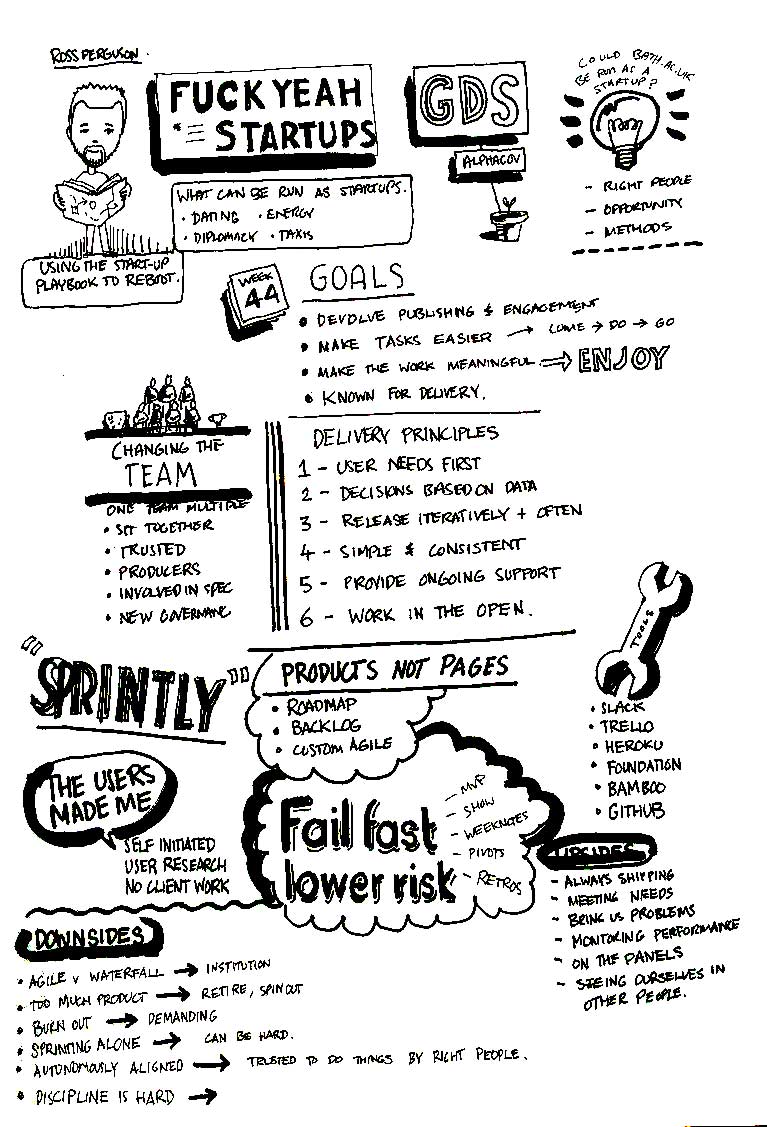 ROSS FERGUSON.
FUCK YEAH
STARTUPS
WHAT CAN BE RUN AS STARTUPS.
• DATING • ENERGY
• DIPLOMACY • TAXIS
USING THE START-UP
PLAYBOOK TO REBOOT.
GDS
ALPHAGOV
COULD BATH.AC.UK
BE RUN AS A
STARTUP?
- RIGHT PEOPLE
- OPPORTUNITY
- METHODS
WEEK
44
GOALS
• DEVOLVE PUBLISHING & ENGAGEMENT
• MAKE TASKS EASIER → COME → DO → GO
• MAKE THE WORK MEANINGFUL ⇒ ENJOY
• KNOWN FOR DELIVERY.
CHANGING THE
TEAM
ONE TEAM MULTIPLE
• SIT TOGETHER
• TRUSTED
• PRODUCERS
• INVOLVED IN SPEC
• NEW GOVERNANC
DELIVERY PRINCIPLES
1 - USER NEEDS FIRST
2 - DECISIONS BASED ON DATA
3 - RELEASE ITERATIVELY + OFTEN
4 - SIMPLE & CONSISTENT
5 - PROVIDE ONGOING SUPPORT
6 - WORK IN THE OPEN.
"SPRINTLY"
PRODUCTS NOT PAGES
• ROADMAP
• BACKLOG
• CUSTOM AGILE
TOOLS
• SLACK
• TRELLO
• HEROKU
• FOUNDATION
• BAMBOO
• GITHUB
THE USERS
MADE ME
SELF INITIATED
USER RESEARCH
NO CLIENT WORK
Fail fast
lower risk
- MVP
- SHOW
- WEEKNOTES
- PIVOTS
- RETROS
UPSIDES
- ALWAYS SHIPPING
- MEETING NEEDS
- BRING US PROBLEMS
- MONITORING PERFORMANCE
- ON THE PANELS
- SEEING OURSELVES IN
OTHER PEOPLE.
DOWNSIDES
• AGILE V WATERFALL → INSTITUTION
• TOO MUCH PRODUCT → RETIRE, SPINOUT
• BURN OUT → DEMANDING
• SPRINTING ALONE → CAN BE HARD.
• AUTONOMOUSLY ALIGNED → TRUSTED TO DO THINGS BY RIGHT PEOPLE.
• DISCIPLINE IS HARD →